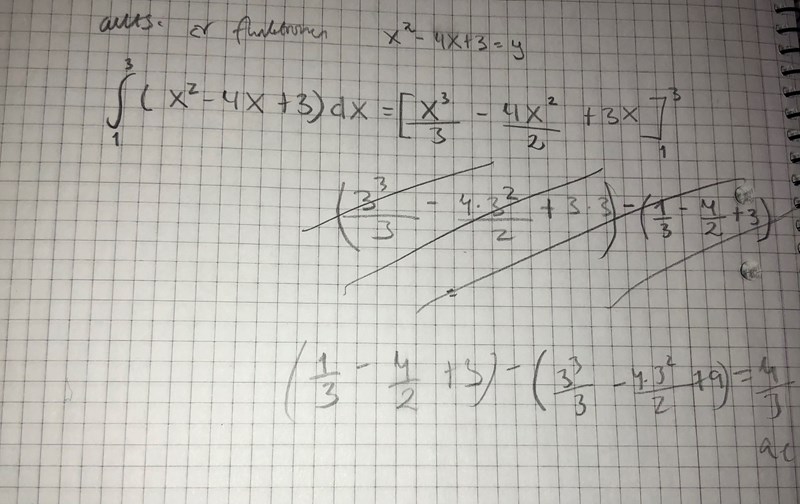 är funktionen x² - 4x + 3 = y
∫₁³ (x² - 4x + 3) dx = [x³/3 - 4x²/2 + 3x]₁³
(3³/3 - 4·3²/2 + 3·3) - (1/3 - 4/2 + 3)
=
(1/3 - 4/2 + 3) - (3³/3 - 4·3²/2 + 9) = 4/3